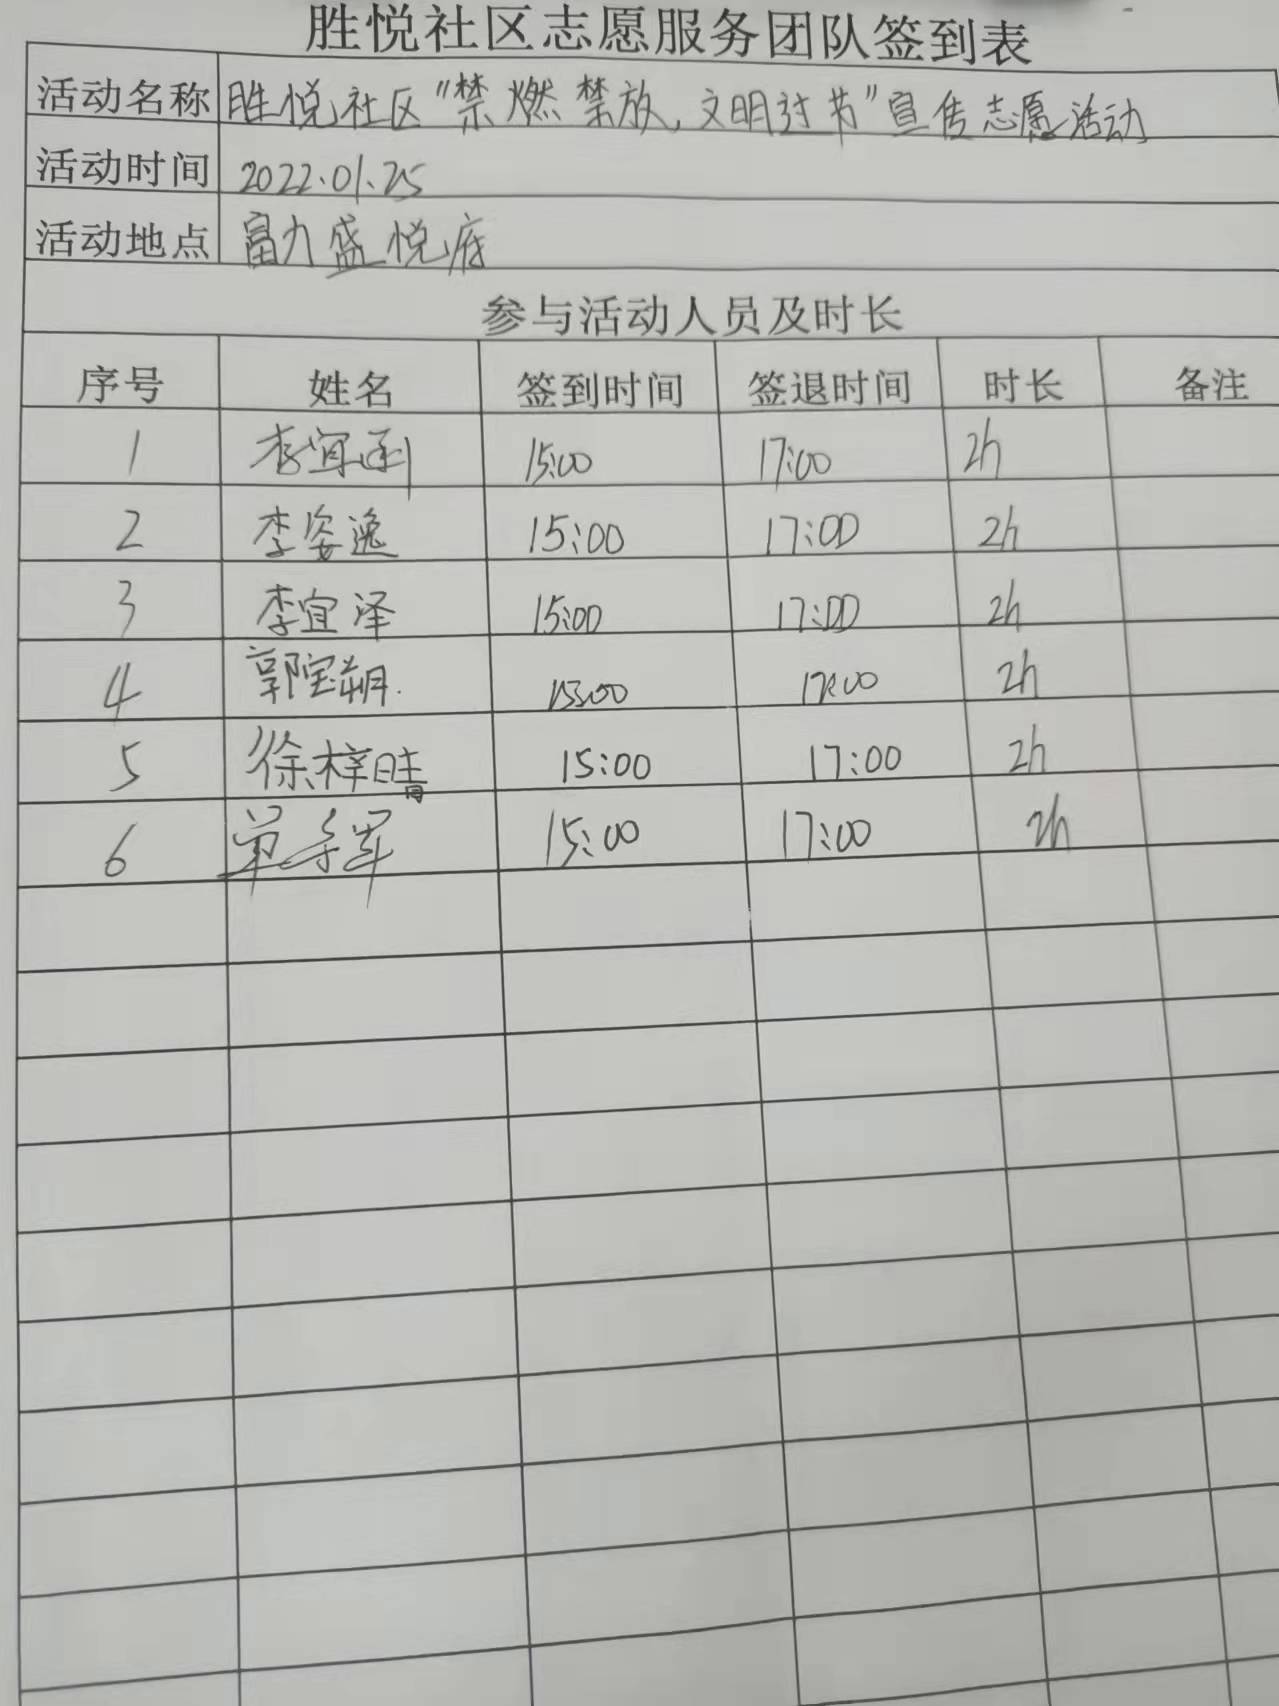 胜悦社区志愿服务团队签到表
活动名称 胜悦社区“禁燃禁放,文明过节”宣传志愿活动
活动时间 2022.01.25
活动地点 富力盛悦府
参与活动人员及时长
序号 姓名 签到时间 签退时间 时长 备注
1 李宜函 15:00 17:00 2h
2 李姿逸 15:00 17:00 2h
3 李宜泽 15:00 17:00 2h
4 郭宝朔 17:00 2h
5 徐梓晴 15:00 17:00 2h
6 单子军 15:00 17:00 2h